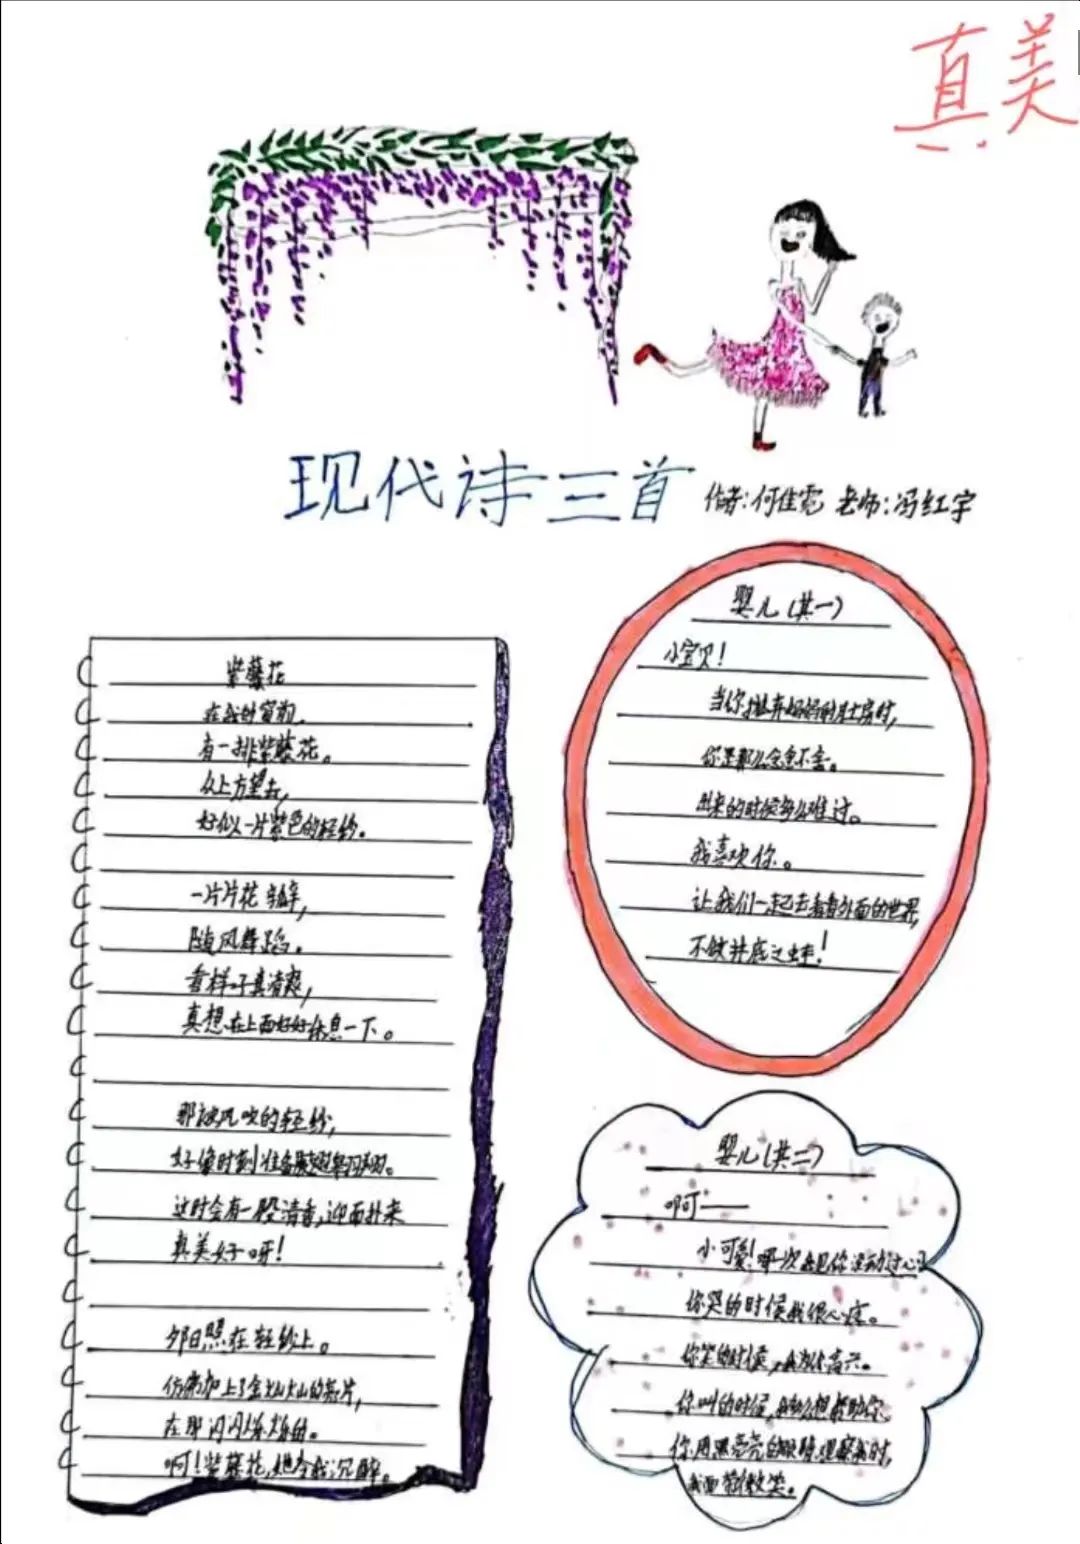 真美
现代诗三首 作者:何佳霓 老师:冯红宇
紫藤花
在我的窗前,
有一排紫藤花。
从上方望去,
好似一片紫色的轻纱。
一片片花瓣,
随风舞蹈。
看样子真清爽,
真想在上面好好休息一下。
那被风吹的轻纱,
好像时刻准备展翅翱翔。
这时会有一股清香,迎面扑来
真美好呀!
夕日照在轻纱上。
仿佛加上了金灿灿的亮片,
在那闪闪烁烁的。
啊!紫藤花,她令我沉醉。
婴儿(其一)
小宝贝!
当你抛弃妈妈的月土房时,
你是那么念念不舍。
出来的时候多么难过。
我喜欢你。
让我们一起去看看外面的世界,
不做井底之蛙!
婴儿(其二)
啊——
小可爱!哪次在见你没动过心
你哭的时候我很心疼。
你笑的时候,我为你高兴。
你叫的时候,我多么想帮助你。
你用黑亮亮的眼睛观察我时,
我面带微笑。